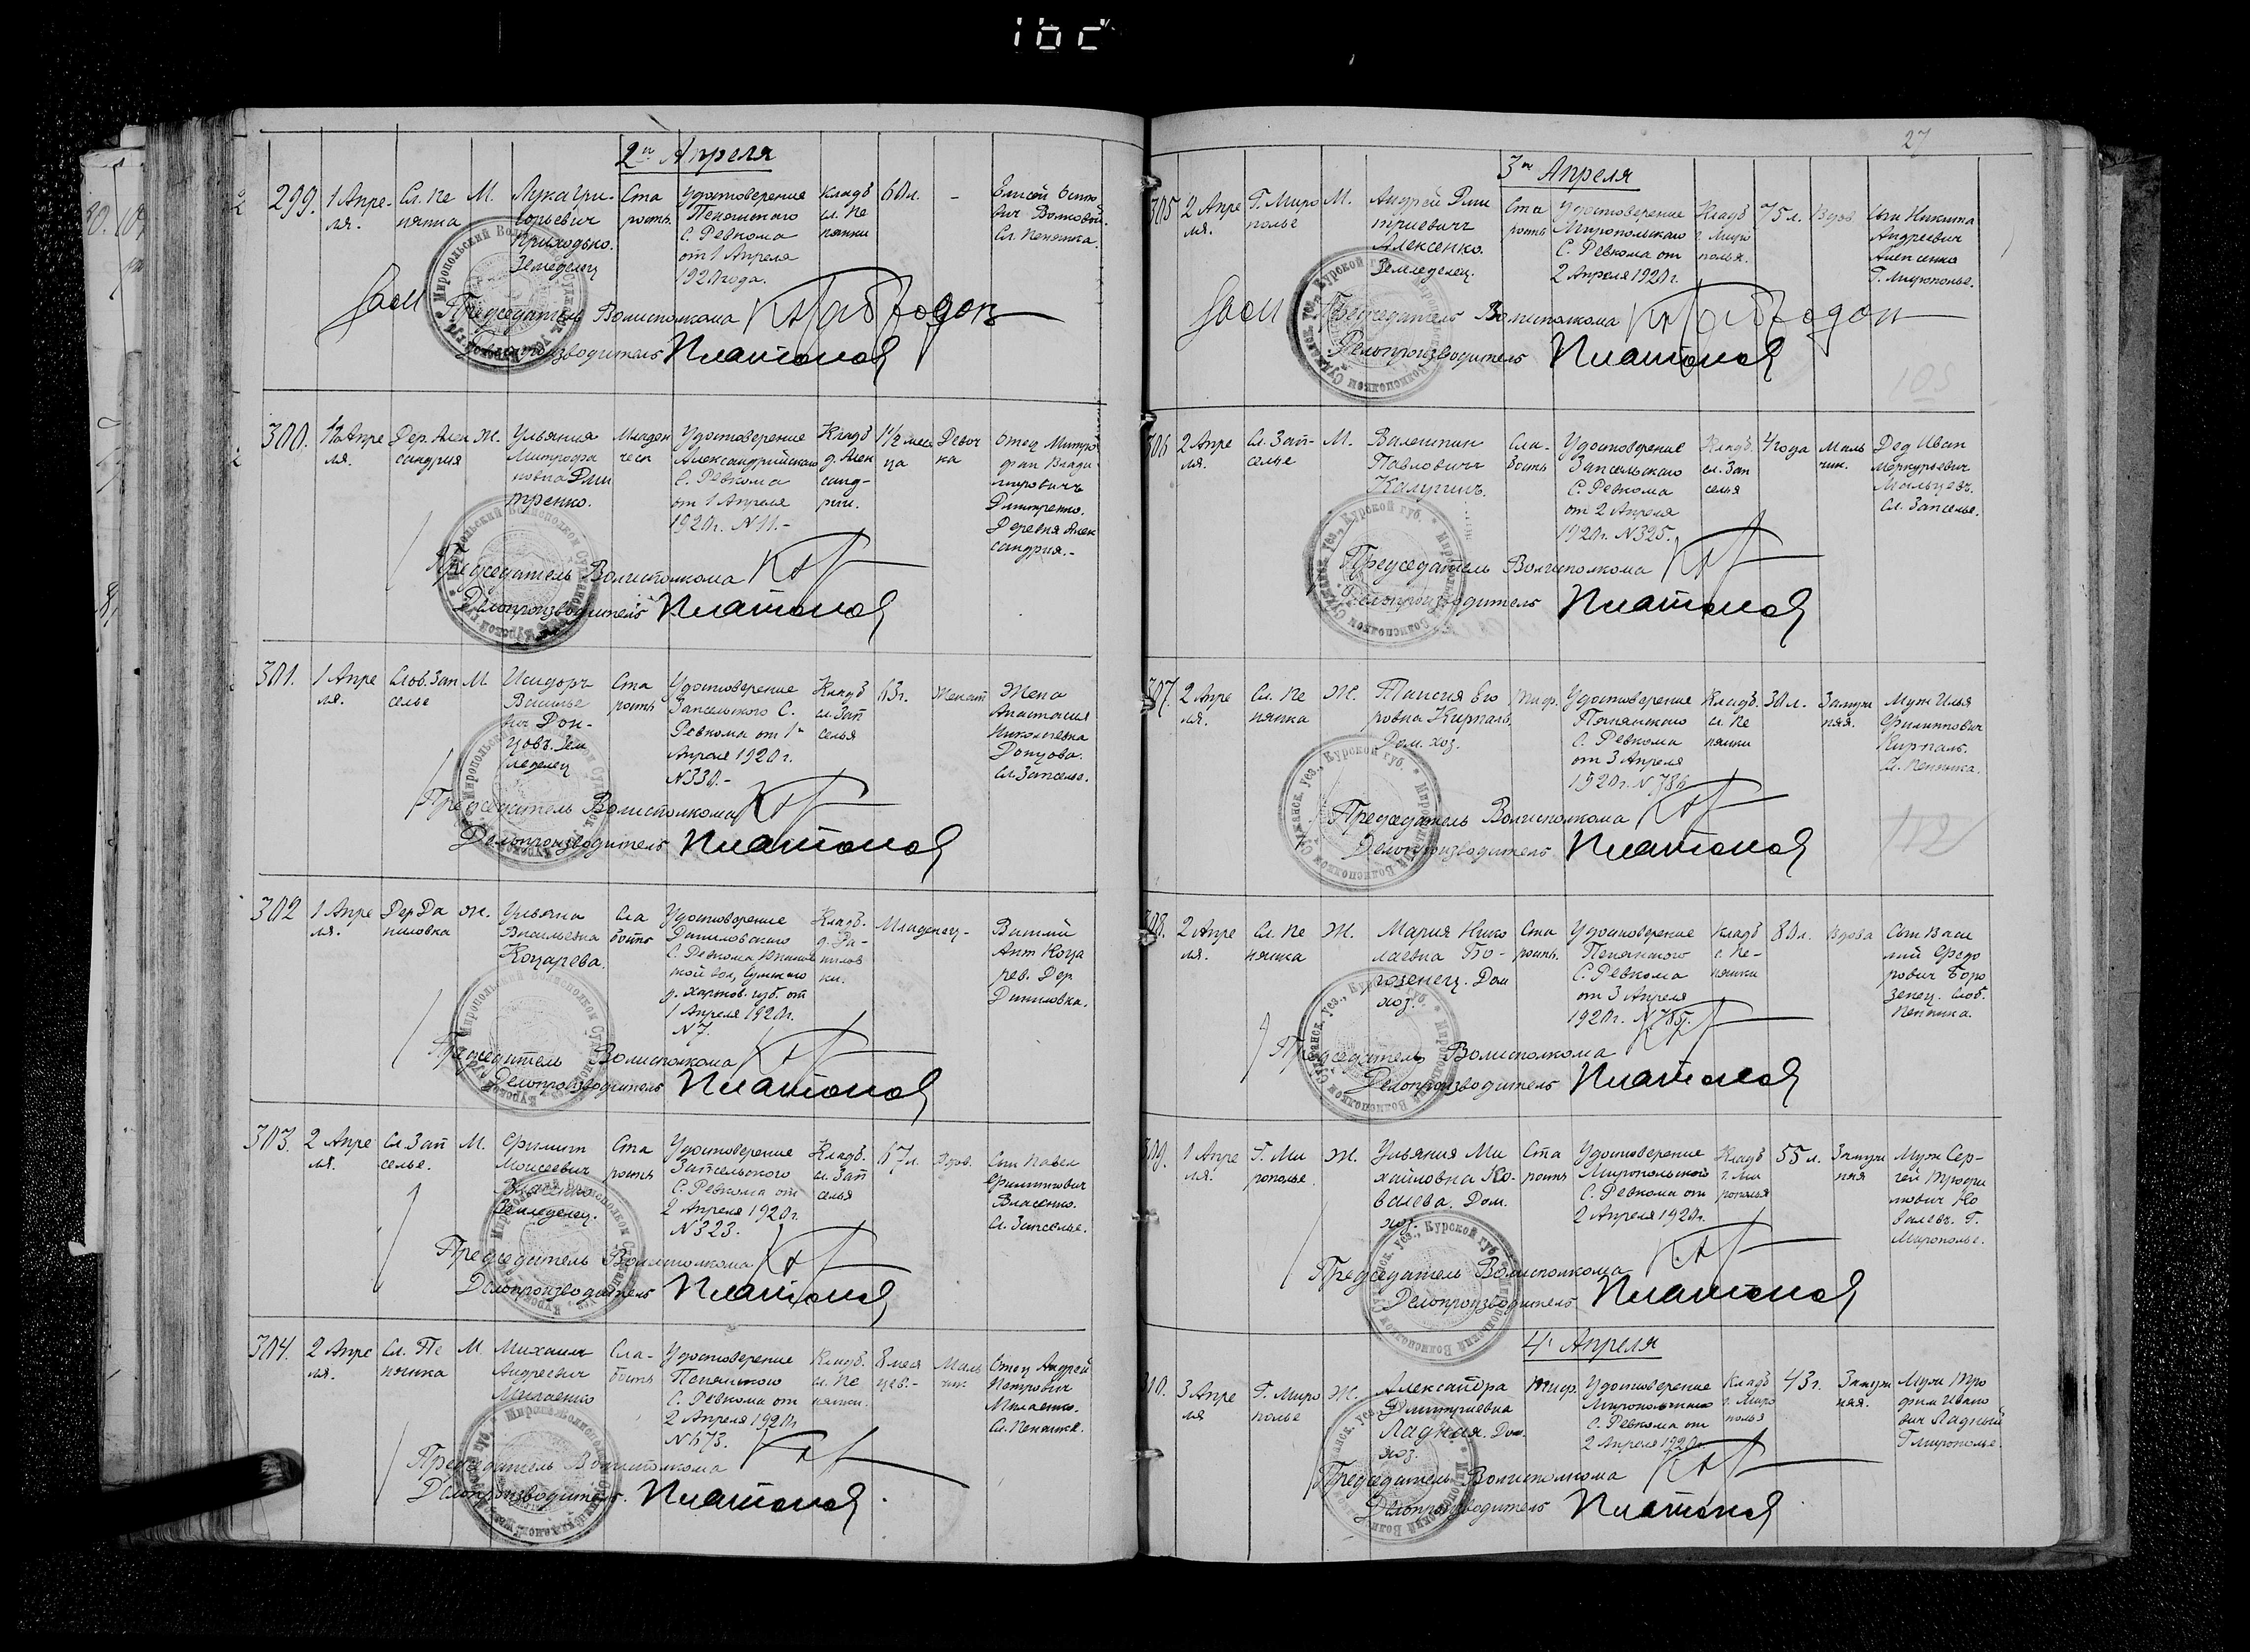 27
2го Апреля
299. 1 Апре-ля. Сл. Пе-нянка М. Лука Гри-горьевич Приходько. Земледелец Ста рость. Удостоверение Пенянского С. Ревкома от 1 Апреля 1920 года. Кладб сл. Пе нянки 60 л. -
Сл. Пенянка.
Председатель Волисполкома
Делопроизводитель Платонов
300. Апре ля. Дер. Алек сандрия Ж. Ульяния Митрофа новна Дми тренко. Младен ческ Удостоверение Александрийского С. Ревкома от 1 Апреля 1920 г. N 11.- Кладб д. Алек санд-рии. 1½ меся ца Девоч ка Отец Митро фан Влади мирович Дмитренко. Деревня Алек сандрия.-
Председатель Волисполкома
Делопроизводитель Платонов
301. 1 Апре ля. Слоб. Зап селье М. Исидор Василье вич Дон-цов. Зем леделец Ста рость Удостоверение Запсельского С. Ревкома от 1го Апреля 1920 г. N 330.- Кладб сл. Зап селья 63 г. Женат Жена Анастасия Николаевна Донцова. Сл. Запселье.
Председатель Волисполкома
Делопроизводитель Платонов
302 1 Апре ля. Дер. Да ниловка Ж. Ульяна Васильевна Коцарева. Сла бость Удостоверение Даниловского С. Ревкома кой вол, Сумского у. Харьков. губ. от 1 Апреля 1920 г. N 7. Кладб. д. Да-нилов ки. Младенец- Коца рев. Дер. Даниловка.
Председатель Волисполкома
Делопроизводитель Платонов
303. 2 Апре ля. Сл. Зап селье. М. Филипп Моисеевич Власенко Земледелец. Ста рость Удостоверение Запсельского С. Ревкома от 2 Апреля 1920 г. N 323. Кладб. сл. Зап селья 67 л. Вдов. Сын Павел Филиппович Власенко. Сл. Запселье.
Председатель Волисполкома
Делопроизводитель Платонов
304. 2 Апре ля. Сл. Пе нянка М. Михаил Андреевич Милаенко Сла-бость Удостоверение Пенянского С. Ревкома от 2 Апреля 1920 г. N 673. Кладб. сл. Пе нянки. 8 меся цев.- Маль чик Отец Андрей Петрович Милаенко. Сл. Пенянка.
Председатель Волисполкома
Делопроизводитель Платонов
3го Апреля
305 2 Апре ля. Г. Миро полье М. Андрей Дми триевич Алексенко. Земледелец. Ста рость Удостоверение Миропольского С. Ревкома от 2 Апреля 1920 г. Кладб г. Миро полья. 75 л. Вдов Сын Никита Андреевич Алексенко Г. Мирополье.
Председатель Волисполкома
Делопроизводитель Платонов
105
306 2 Апре ля. Сл. Зап-селье М. Валентин Павлович Калугин. Сла-бость Удостоверение Запсельского С. Ревкома от 2 Апреля 1920 г. N 325. Кладб. сл. Зап селья 4 года Маль чик. Дед Иван Меркурьевич Мальцев. Сл. Запселье.
Председатель Волисполкома
Делопроизводитель Платонов
307. 2 Апре ля. Сл. Пе нянка Ж. Таисия Его ровна Кирпаль Дом. хоз. Тиф. Удостоверение Пенянского С. Ревкома от 3 Апреля 1920 г. N 786 Кладб. сл. Пе нянки 30 л. Замуж няя. Муж Илья Филиппович Кирпаль. Сл. Пенянка.
Председатель Волисполкома
Делопроизводитель Платонов
112
308. 2 Апре ля. Сл. Пе нянка Ж. Мария Нико лаевна Бо-розенец. Дом хоз. Ста рость. Удостоверение Пенянского С. Ревкома от 3 Апреля 1920 г. N 785. Кладб с. Пе-нянки 80 л. Вдова Сын Васи лий Федо рович Боро зенец. Слоб. Пенянка.
Председатель Волисполкома
Делопроизводитель Платонов
309. 1 Апре ля. Г. Ми рополье Ж. Ульяния Ми хайловна Ко-валева. Дом. хоз. Ста рость Удостоверение Миропольского С. Ревкома от 2 Апреля 1920 г. Кладб г. Ми рополья 55 л. Замуж няя Муж Сер-гей Трофи мович Ко валев. Г. Мирополье.
Председатель Волисполкома
Делопроизводитель Платонов
4го Апреля
310. 3 Апре ля Г. Миро полье Ж. Александра Дмитриевна Ладная. Дом. хоз. Тиф. Удостоверение Миропольского С. Ревкома от 2 Апреля 1920 г. Кладб г. Миро полья 43 г. Замуж няя. Муж Тро фим Ивано вич Ладный Г. Мирополье.
Председатель Волисполкома
Делопроизводитель Платонов